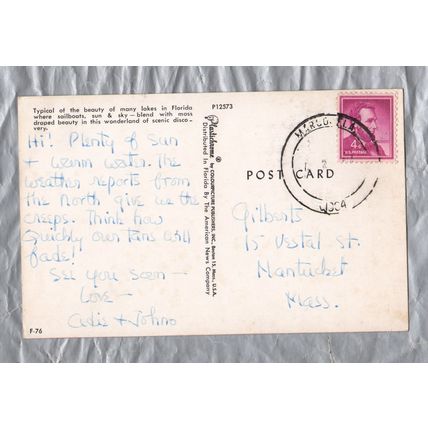 Typical of the beauty of many lakes in Florida
where sailboats, sun & sky — blend with moss
draped beauty in this wonderland of scenic disco-
very.
P12573
Hi! Plenty of sun
+ warm water. The
weather reports from
the North give us the
creeps. Think how
quickly our tans will
fade!
See you soon —
Love —
+ Johno
F-76
Plastichrome ®
by COLOURPICTURE PUBLISHERS, INC., Boston 15, Mass., U.S.A.
Distributed In Florida By The American News Company
POST CARD
4¢
U.S. POSTAGE
MARCO, FLA.
Gilberts
15 Vestal St.
Nantucket
Mass.